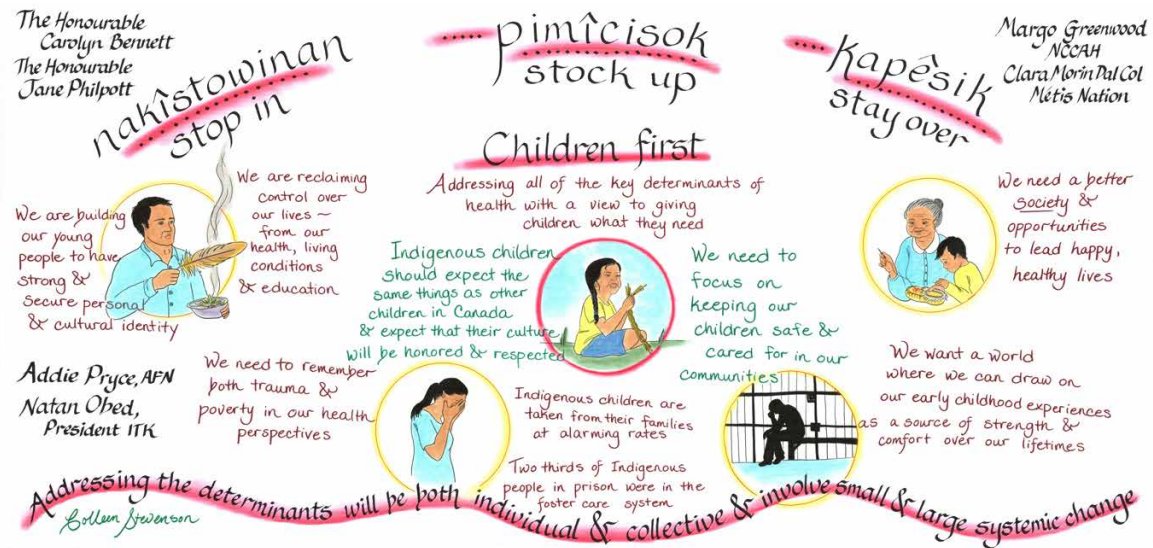 The Honourable
Carolyn Bennett
The Honourable
Jane Philpott
nakîstowinan
stop in
..... pimîcisok
stock up
.... kapêsik
stay over
Margo Greenwood
NCCAH
Clara Morin Dal Col
Métis Nation
Children first
Addressing all of the key determinants of
health with a view to giving
children what they need
We are building
our young
people to have
strong &
secure personal
& cultural identity
We are reclaiming
control over
our lives ~
from our
health, living
conditions
& education
Indigenous children
should expect the
same things as other
children in Canada
& expect that their culture
will be honored & respected
We need to
focus on
keeping our
children safe &
cared for in our
communities
We need a better
society &
opportunities
to lead happy,
healthy lives
Addie Pryce, AFN
Natan Obed,
President ITK
We need to remember
both trauma &
poverty in our health
perspectives
Indigenous children are
taken from their families
at alarming rates
Two thirds of Indigenous
people in prison were in the
foster care system
We want a world
where we can draw on
our early childhood experiences
as a source of strength &
comfort over our lifetimes
Addressing the determinants will be both individual & collective & involve small & large systemic change
Colleen Stevenson